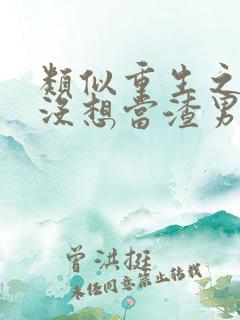 類似重生之
沒想當渣男
曾洪挺
未任同意禁止转载